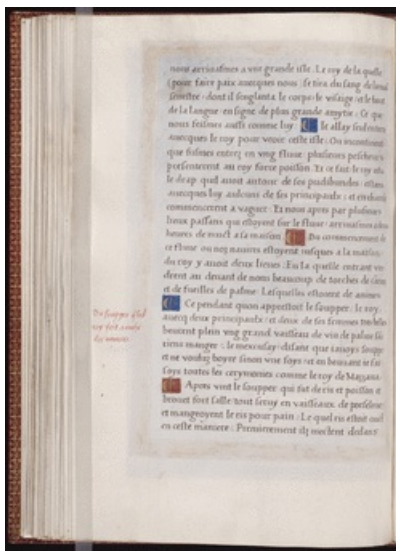 nous arrivasmes a une grande isle. Le roy de la quelle
pour faire paix avecques nous se tira du sang de la main
senestre dont il senglanta le corps le visage et le bout
de la langue en signe de plus grande amytie. Ce que
nous feismes aussi comme luy. Je allay seul
avecques le roy pour veoir ceste isle. On incontinent
que fusmes entrez en ung fluve plusieurs pescheurs
presenterent au roy force poisson Et ce fait le roy osta
le drap quil avoit autour de ses pudibundes
avecques luy aulcuns de ses principaulx et en chantant
commencerent a vaguer Et nous apres par plusieurs
lieux passans qui estoyent sur le fluve arrivasmes a deux
heures de nuict a sa maison Du commencement de
ce fluve ou noz navires estoyent iusques a la maison
du roy y avoit deux lieues En la quelle entrant vin
drent au devant de nous beaucoup de torches de canne
et de fueilles de palme Lesquelles estoient de animes
Ce pendant quon apprestoit le soupper le roy
avecq deux principaulx et deux de ses femmes
beurent plein ung grand vaisseau de vin de palme sans
riens manger Ie mexcusay disant que iavoys souppe
et ne vouluz boyre sinon une foys et en beuvant se fai
soyt toutes les cerymonies comme le roy de Mazzana
Apres vint le soupper qui fut de ris et poisson et
brouet fort salle tout servy en vaisseaux de porselene
et mangeoyent le ris pour pain Le quel ris estoit cuict
en ceste maniere Premierement ilz mectent dedans
Du soupper
roy